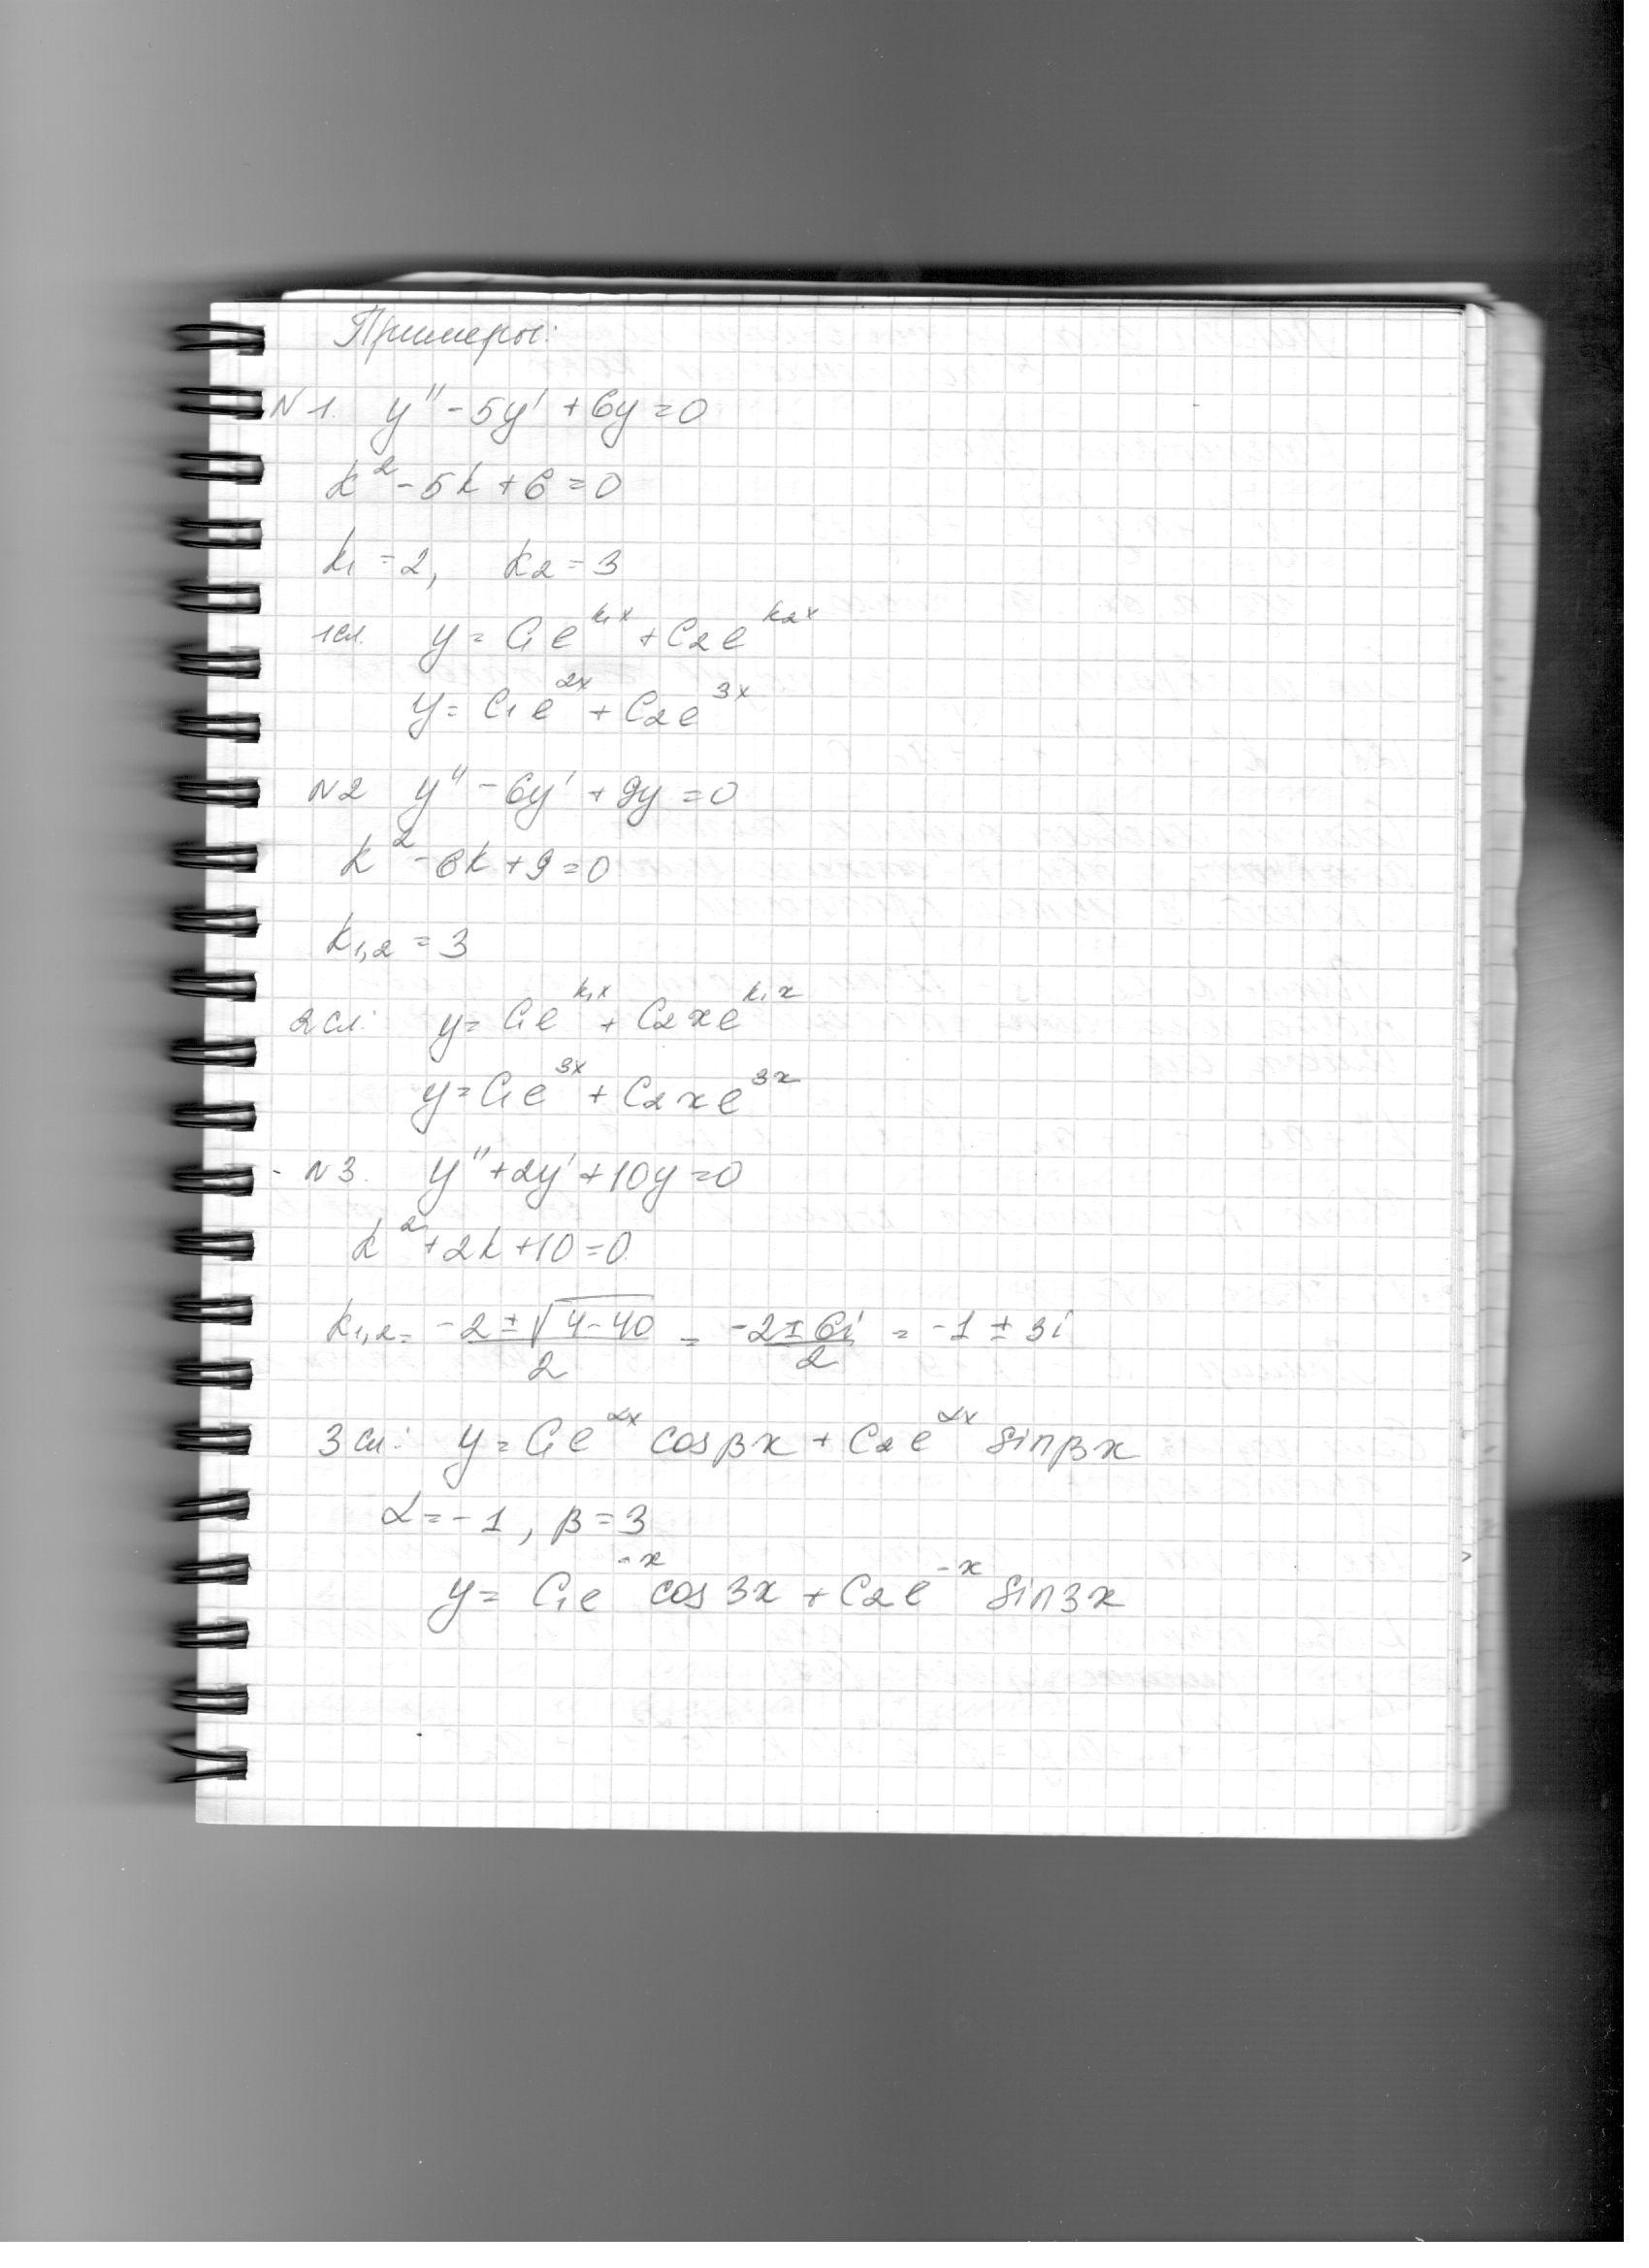 Примеры:
N1. y'' - 5y' + 6y = 0
k² - 5k + 6 = 0
k₁ = 2, k₂ = 3
1сл. y = C₁e^{k₁x} + C₂e^{k₂x}
y = C₁e^{2x} + C₂e^{3x}
N2 y'' - 6y' + 9y = 0
k² - 6k + 9 = 0
k₁,₂ = 3
2сл: y = C₁e^{k₁x} + C₂xe^{k₁x}
y = C₁e^{3x} + C₂xe^{3x}
N3. y'' + 2y' + 10y = 0
k² + 2k + 10 = 0
k₁,₂ = (-2 ± √(4-40))/2 = (-2 ± 6i)/2 = -1 ± 3i
3сл: y = C₁e^{αx} cosβx + C₂e^{αx} sinβx
α = -1, β = 3
y = C₁e^{-x} cos3x + C₂e^{-x} sin3x